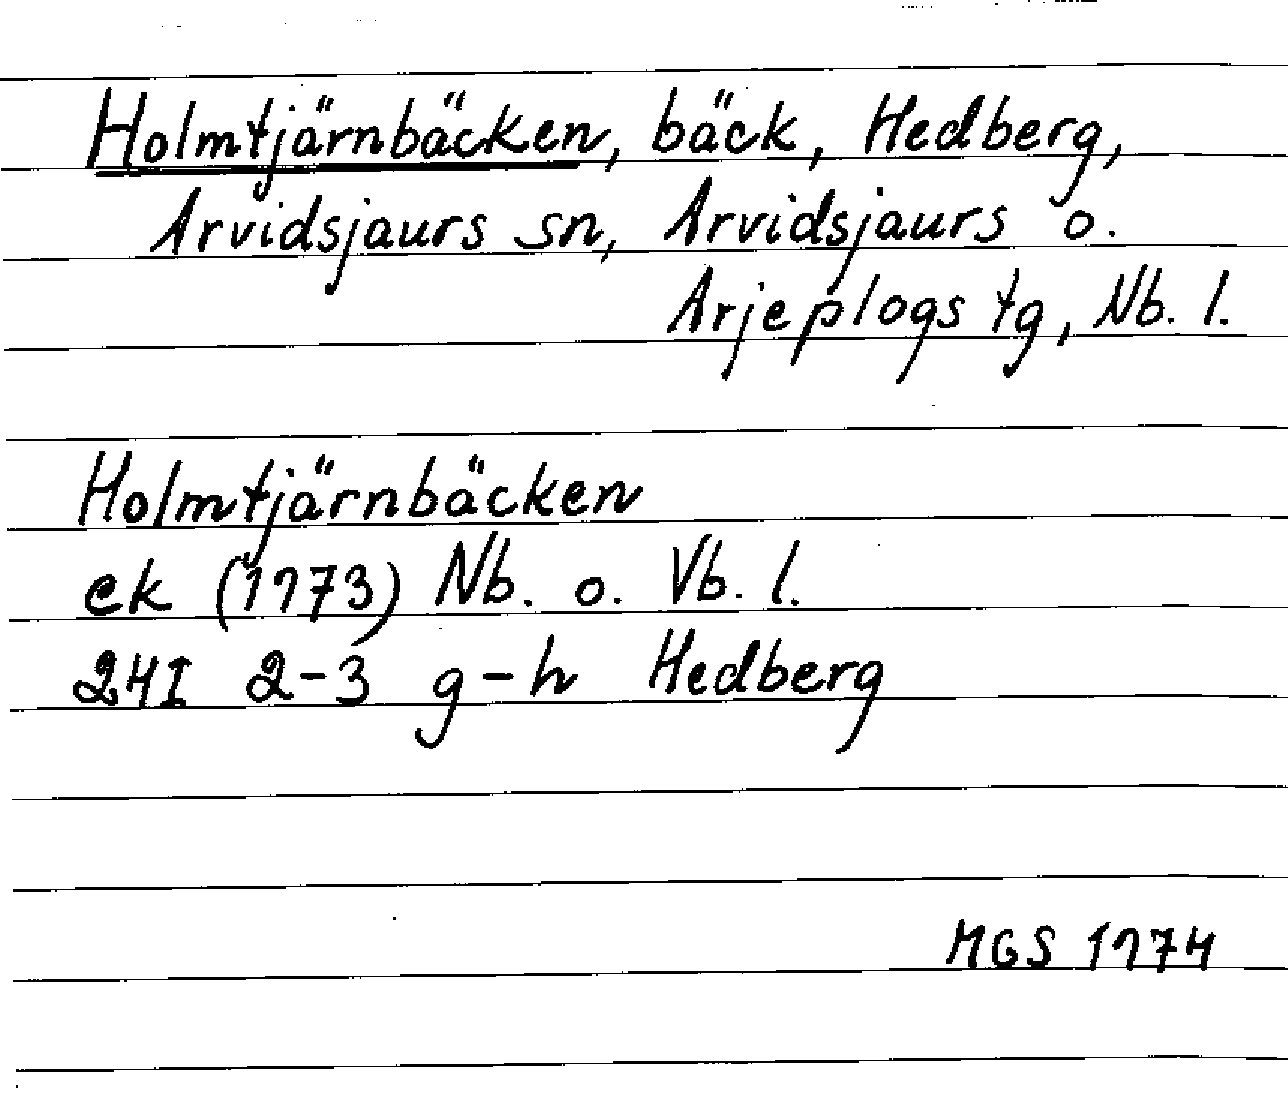 Holmtjärnbäcken, bäck, Hedberg,
Arvidsjaurs sn, Arvidsjaurs o.
Arjeplogs tg, Nb. l.
Holmtjärnbäcken
ek (1973) Nb. o. Vb. l.
24I 2-3 g-h Hedberg
MGS 1974